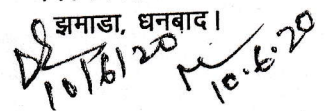 झमाडा, धनबाद।
10/6/20
10.6.20